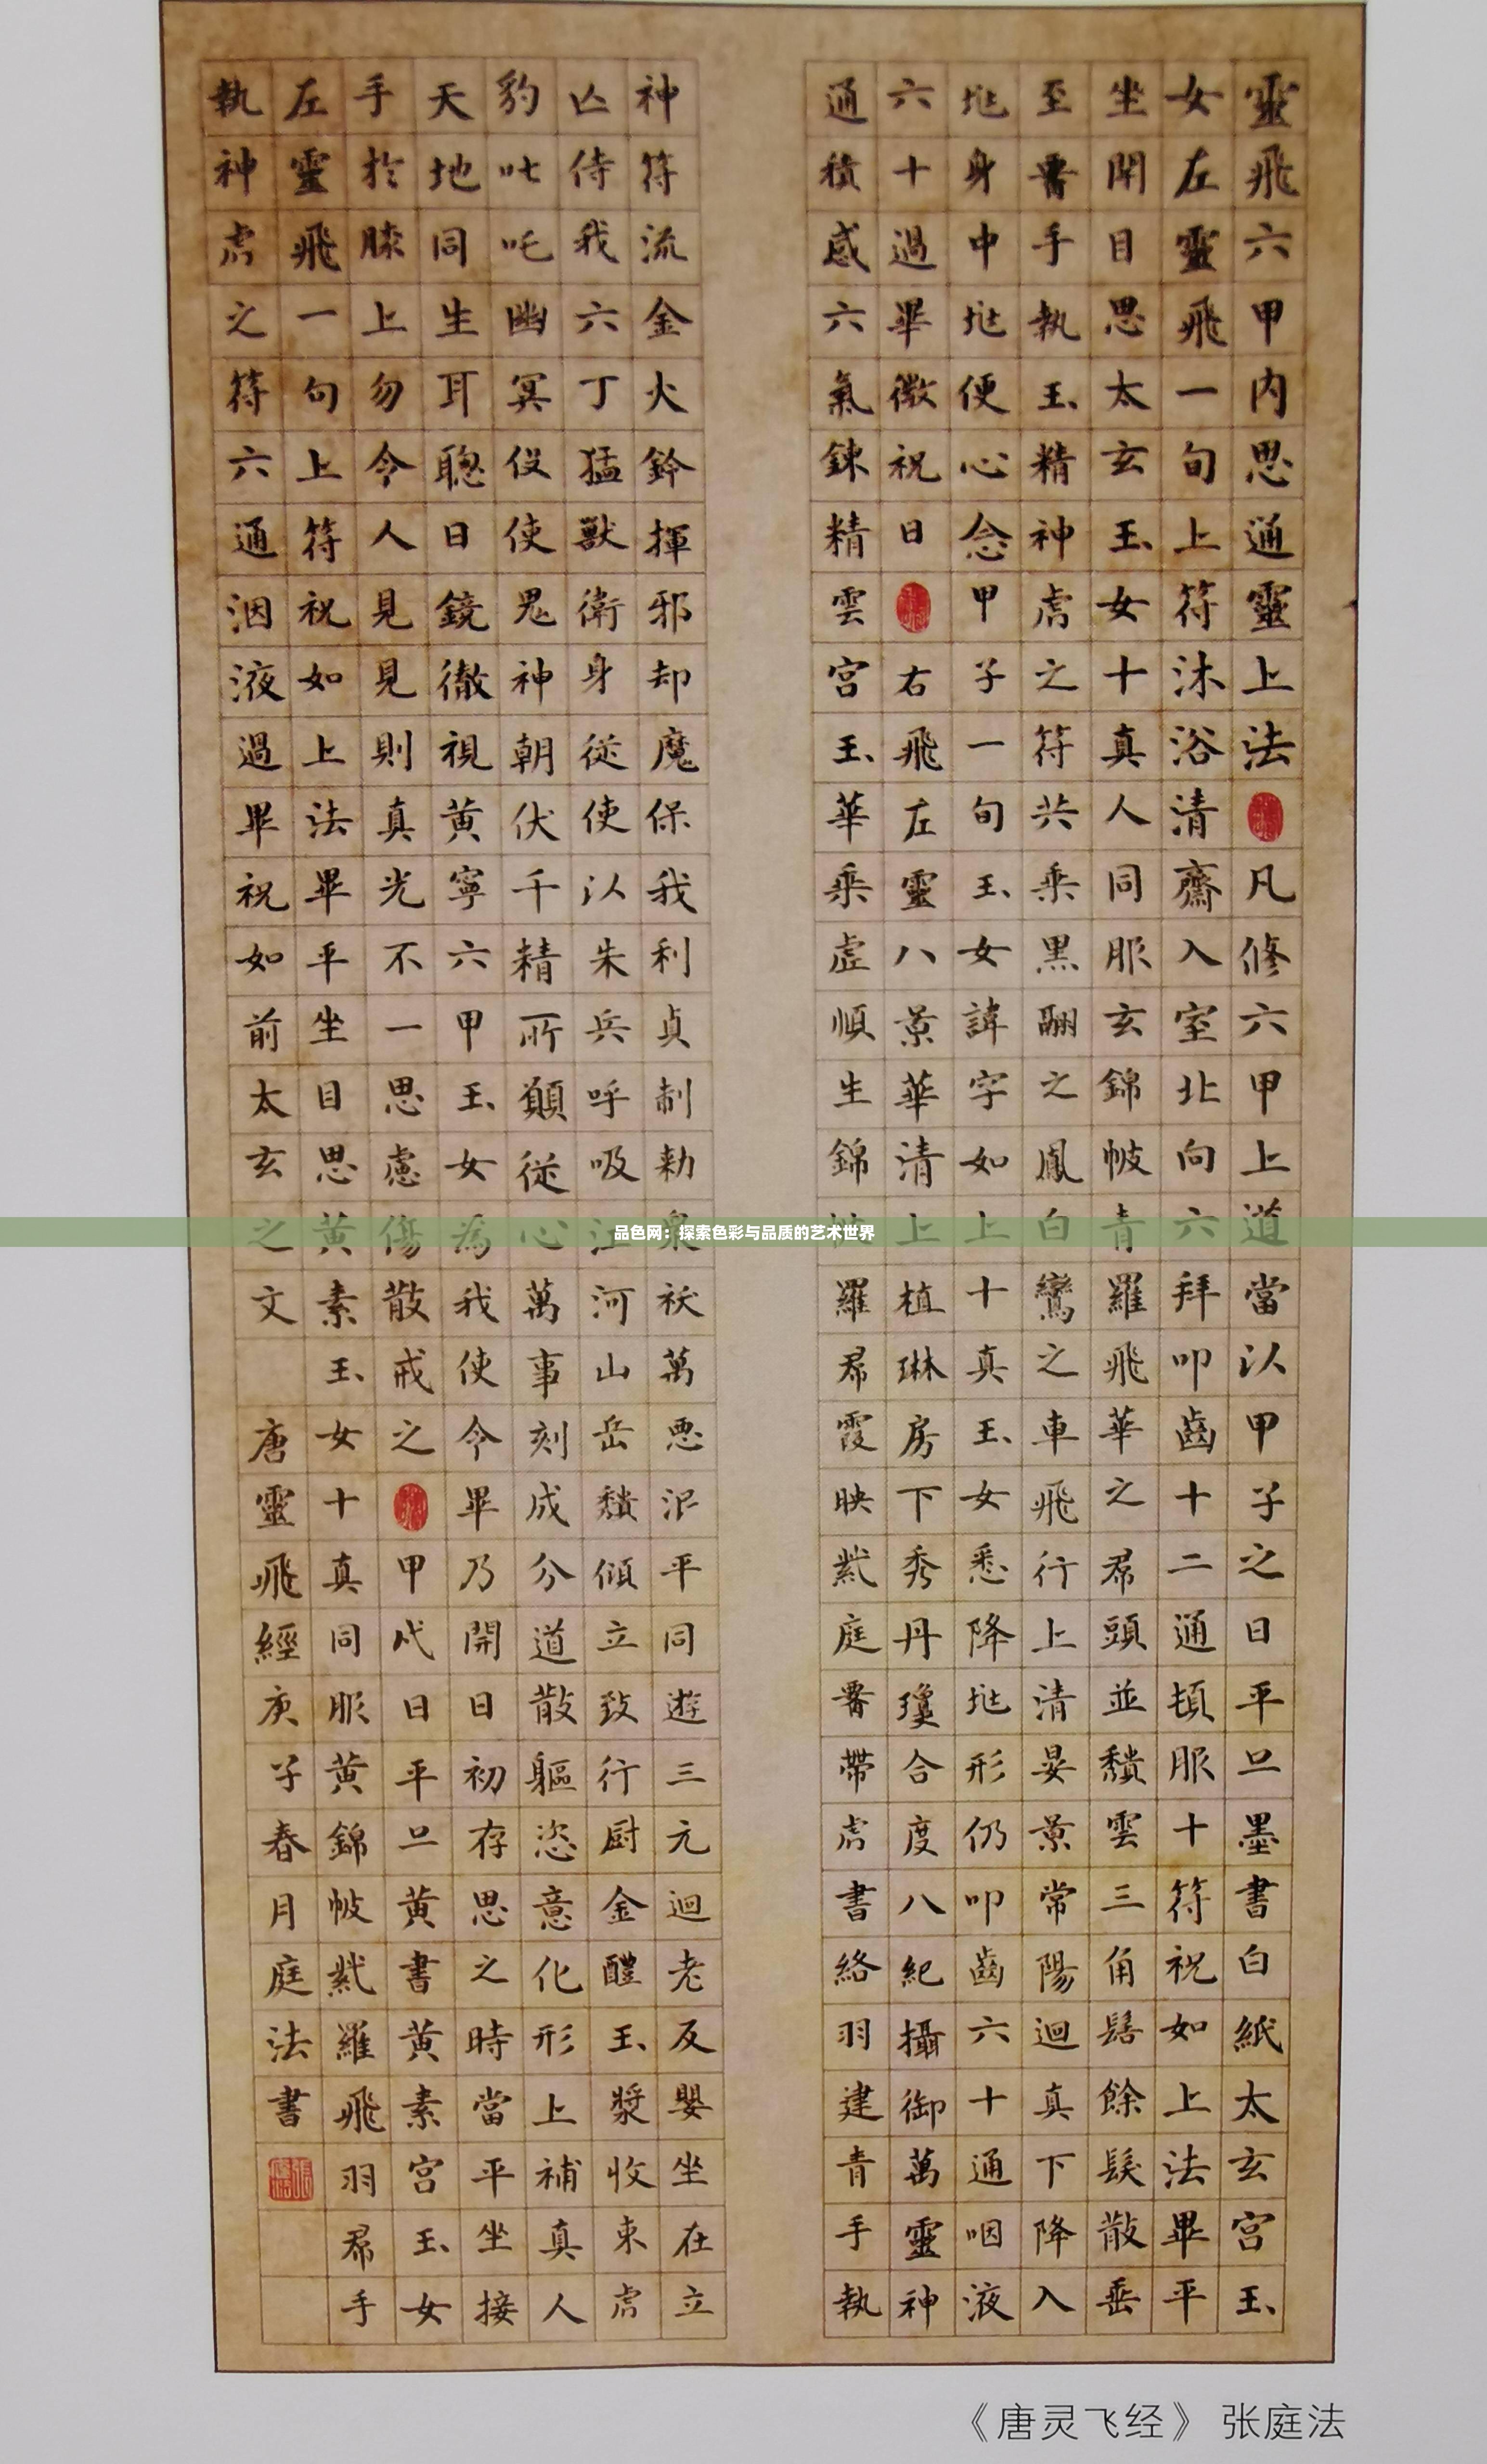 靈飛六甲内思通靈上法凡修六甲上道當以甲子之日平旦墨書白紙太玄宮玉
女左靈飛一旬上符沐浴清齋入室北向六拜叩齒十二通頓服十符祝如上法畢平
坐閉目思太玄玉女十真人同服玄錦帔青羅飛華之帬頭並頹雲三角髻餘髮散垂
至腰手執玉精神虎之符共乘黑翮之鳳白鸞之車飛行上清晏景常陽迴真下降入
兆身中兆便心念甲子一旬玉女諱字如上十真玉女悉降兆形仍叩齒六十通咽液
六十過畢微祝曰右飛左靈八景華清上植琳房下秀丹瓊合度八紀攝御萬靈神
通積感六氣鍊精雲宮玉華乘虛順生錦帔羅帬霞映紫庭腰帶虎書絡羽建青手執
神符流金火鈴揮邪却魔保我利貞制勅衆祅萬惡泯平同遊三元迴老反嬰坐在立
亡侍我六丁猛獸衛身從使以朱兵呼吸江河山岳頹傾立致行厨金醴玉漿收束虎
豹叱吒幽冥役使鬼神朝伏千精所願從心萬事刻成分道散軀恣意化形上補真人
天地同生耳聰目鏡徹視黃寧六甲玉女為我使令畢乃開目初存思之時當平坐接
手於膝上勿令人見見則真光不一思慮傷散戒之甲戌日平旦黃書黃素宮玉女
左靈飛一句上符祝如上法畢平坐目思黃素玉女十真同服黃錦帔紫羅飛羽帬手
執神虎之符六通洇液過畢祝如前太玄之文 唐靈飛經庚子春月庭法書
品色网：探索色彩与品质的艺术世界
《唐灵飞经》张庭法